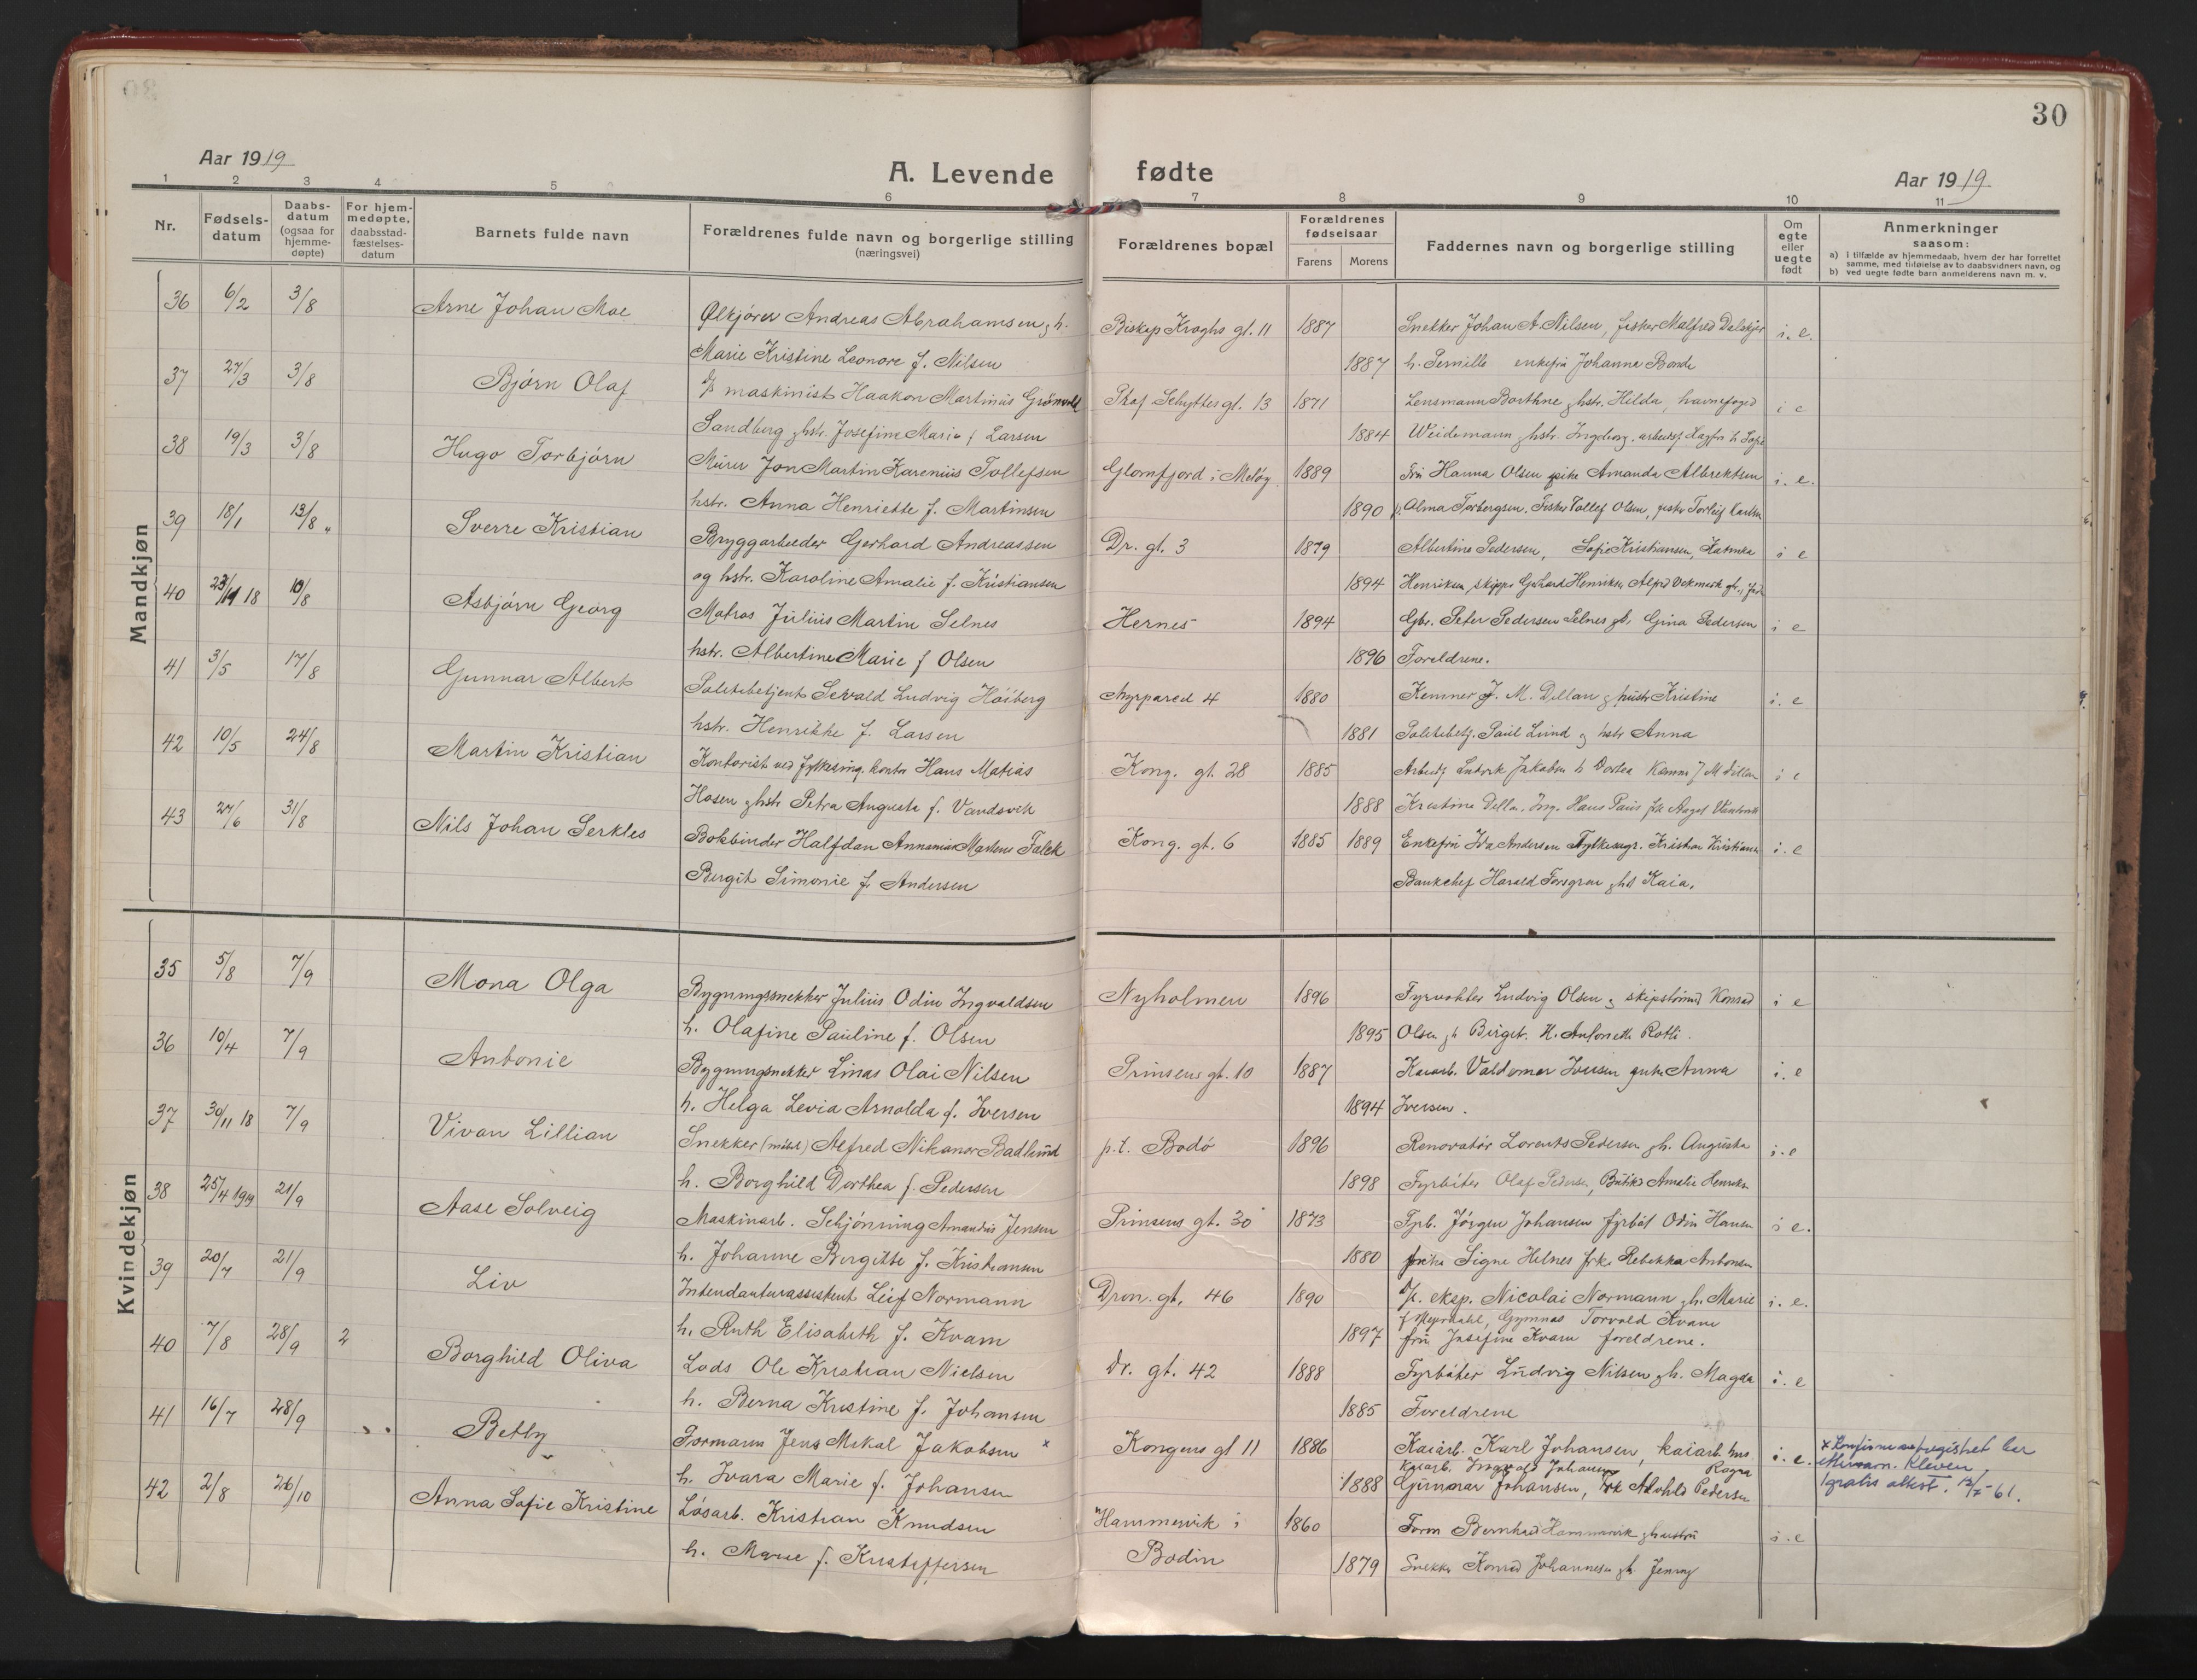 30
Aar 1919
A. Levende fødte
Aar 1919
1 2 3 4 5 6 7 8 9 10 11
Nr.
Fødsels-
datum
Daabs-
datum
(ogsaa for
hjemme-
døpte)
For hjem-
medøpte,
daabsstad-
fæstelses-
datum
Barnets fulde navn
Forældrenes fulde navn og borgerlige stilling
(næringsvei)
Forældrenes bopæl
Forældrenes
fødselsaar
Farens Morens
Faddernes navn og borgerlige stilling
Om
egte
eller
uegte
født
Anmerkninger
saasom:
a) I tilfælde av hjemmedaab, hvem der har forrettet
samme, med tilføielse av to daabsvidners navn, og
b) ved uegte fødte barn anmelderens navn m. v.
Mandkjøn
36 6/2 3/8 Arne Johan Moe Ølkjører Andreas Abrahamsen, h. Biskop Kroghs gt. 11 1887 Snekker Johan A. Nilsen, fisker Malfred Dalskjer i. e.
Marie Kristine Leonore f. Nilsen 1887 h. Pernille enkefru Johanna Bonde
37 27/3 3/8 Bjørn Olaf D/s maskinist Haakon Martinus Grønvold Prof Schyttesgt. 13 1871 Lensmann Borthne g hstr. Hilda, havnefoged i e
Sandberg g hstr. Josefine Marie f Larsen 1884 Weidemann g hstr. Ingeborg. arbeidsf
38 19/3 3/8 Hugo Torbjørn Murer Jon Martin Karenius Tollefsen Glomfjord i Meløy 1889 Fru Hanna Olsen pike Amanda Albrektsen i. e.
hstr. Anna Henriette f. Martinsen 1890 Alma Torbergsen. Fisker Tollef Olsen, fisker Torleif Karlsen
39 18/1 13/8 Sverre Kristian Bryggarbeider Gerhard Andreassen Dr. gt. 3 1879 Albertine Pedersen, Sofie Kristiansen, Katinka i e
og hstr. Karoline Amalie f. Kristiansen 1894 Henriksen, skipper Gerhard Henriksen
40 23/11 18 10/8 Asbjørn Georg Matros Julius Martin Selnes Hernes 1894 Gbr. Peter Pedersen Selnes g h. Gina Pedersen i e
hstr. Albertine Marie f Olsen 1896 Foreldrene.
41 3/5 17/8 Gunnar Albert Politibetjent Sevald Ludvig Høiberg Nyrpared 4 1880 Kemner J. M. Dillan g hustr Kristine i. e
hstr. Henrikke f. Larsen 1881 Politibetj. Paul Lund g hstr Anna
42 10/5 24/8 Martin Kristian Kontorist ved fylkesing. kontor Hans Matias Kong. gt. 28 1885 Arbeidsf Ludvik Jakobsen h Dortea Kemner J M Dillan i e
Hosen g hstr Petra Augusta f. Vandsvik 1888 Kristine Dillan. Ing. Hans Paus
43 27/6 31/8 Nils Johan Serkles Bokbinder Halfdan Annanias Martens Falck Kong. gt. 6 1885 1889 Enkefru Ida Andersen Kristian Kristiansen i. e
Bergit Simonie f. Andersen Bankchef Harald Forsgren g hst Kaia.
Kvindekjøn
35 5/8 7/9 Mona Olga Bygningssnekker Julius Odin Ingvaldsen Nyholmen 1896 Fyrvokter Ludvig Olsen g skipstømm Konrad i e
h. Olafine Pauline f. Olsen 1895 Olsen g h Birgit. H. Antonette Rotli.
36 10/4 7/9 Antonie Bygningsnekker Linas Olai Nilsen Prinsens gt. 10 1887 Kaiarb. Valdemar Iversen Anna i. e
h. Helga Levia Arnolda f. Iversen 1894 Iversen.
37 30/11 18 7/9 Vivan Lillian Snekker (møbel) Alfred Nikanor Badlund p.t. Bodø 1896 Renovatør Lorents Pedersen g h. Augusta i. e
h. Borghild Dorthea f. Pedersen 1898 Fyrbøter Olaf Pedersen, Butikd Amalie Henriksen
38 25/4 1919 21/9 Aase Solveig Maskinarb. Schjønning Amandus Jensen Prinsens gt. 30 1873 Fyrb. Jørgen Johansen fyrbøt Odin Hansen i e.
h. Johanne Birgitte f. Kristiansen 1880 frøken Signe Helnes frk. Rebekka Antonsen
39 20/7 21/9 Liv Intendanturassistent Leif Normann Dron. gt. 46 1890 D/s. eksp. Nicolai Normann g h. Marie i. e.
h. Ruth Elisabeth f. Kvam 1897 Gymnas Torvald Kvam
fru Josefine Kvam foreldrene.
40 7/8 28/9 2 Borghild Oliva Lods Ole Kristian Nielsen Dr. gt. 42 1888 Fyrbøter Ludvig Nilsen g h. Magda i. e
h. Berna Kristine f. Johansen 1885 Foreldrene
41 16/7 28/9 Betty Formann Jens Mikal Jakobsen x Kongens gt 11 1886 Kaiarb. Karl Johansen, kaiarb. hns i. e. x Konfirmasjonsregistret har
Kaiarb. Ingvald Johansen Ragna etternavn. Kleven.
h. Ivara Marie f. Johansen 1888 Gunnar Johansen, Frk Alvhild Pedersen 1 gratis attest. 12/5-61.
42 2/8 26/10 Anna Sofie Kristine Løsarb. Kristian Knudsen Hammervik i 1860 Form Bernhard Hammervik g hustru i. e
h. Marie f. Kristoffersen Bodin 1879 Snekker Konrad Johannesen g h. Jenny